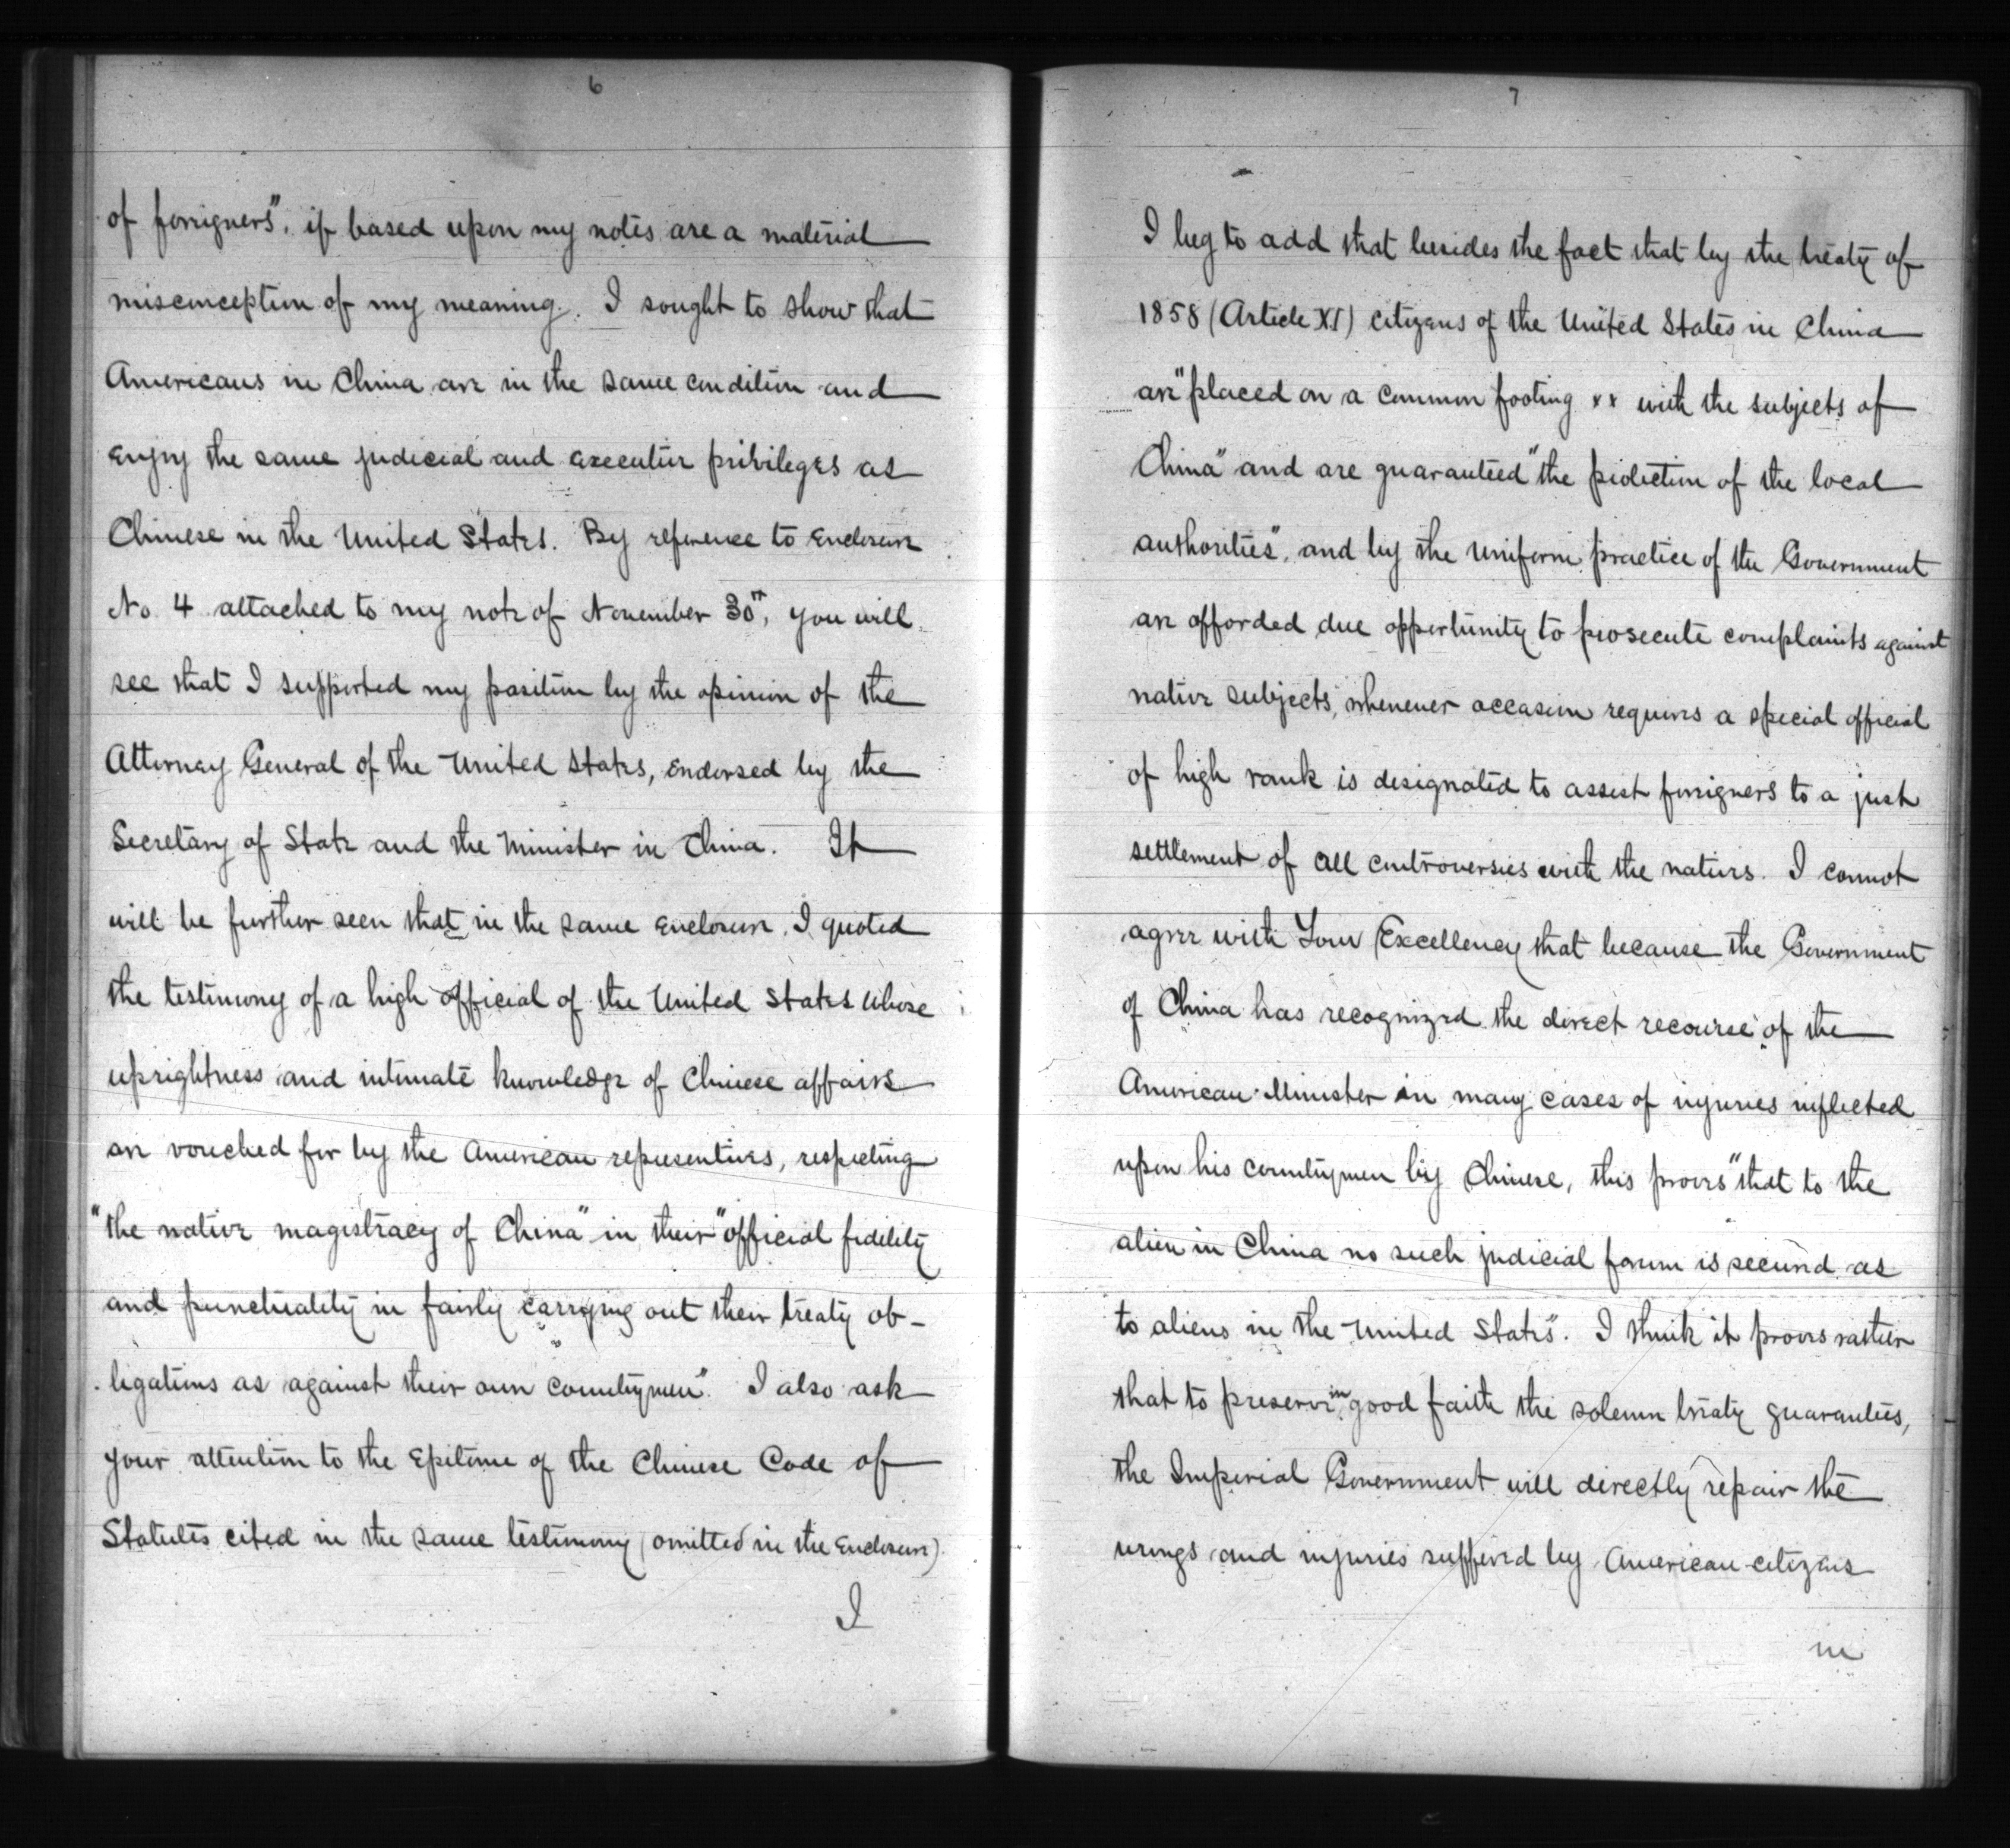 6
of foreigners", if based upon my notes are a material
misconception of my meaning. I sought to show that
Americans in China are in the same condition and
enjoy the same judicial and executive privileges as
Chinese in the United States. By reference to Enclosure
No. 4 attached to my note of November 30th, you will
see that I supported my position by the opinion of the
Attorney General of the United States, endorsed by the
Secretary of State and the Minister in China. It
will be further seen that in the same enclosure, I quoted
the testimony of a high official of the United States whose
uprightness and intimate knowledge of Chinese affairs
are vouched for by the American representives, respecting
"the native magistracy of China" in their "official fidelity
and punctuality in fairly carrying out their treaty ob-
ligations as against their own countrymen". I also ask
your attention to the Epitome of the Chinese Code of
Statutes cited in the same testimony (omitted in the Enclosure).
I
7
I beg to add that besides the fact that by the treaty of
1858 (Article XI) citizens of the United States in China
are "placed on a common footing xx with the subjects of
China" and are guaranteed "the protection of the local
authorities", and by the uniform practice of the Government
are afforded due opportunity to prosecute complaints against
native subjects, whenever occasion requires a special official
of high rank is designated to assist foreigners to a just
settlement of all controversies with the natives. I cannot
agree with Your Excellency that because the Government
of China has recognized the direct recourse of the
American Minister in many cases of injuries inflicted
upon his countrymen by Chinese, this proves "that to the
alien in China no such judicial forum is secured as
to aliens in the United States". I think it proves rather
that to preserve in good faith the solemn treaty guarantees,
the Imperial Government will directly repair the
wrongs and injuries suffered by American citizens
in